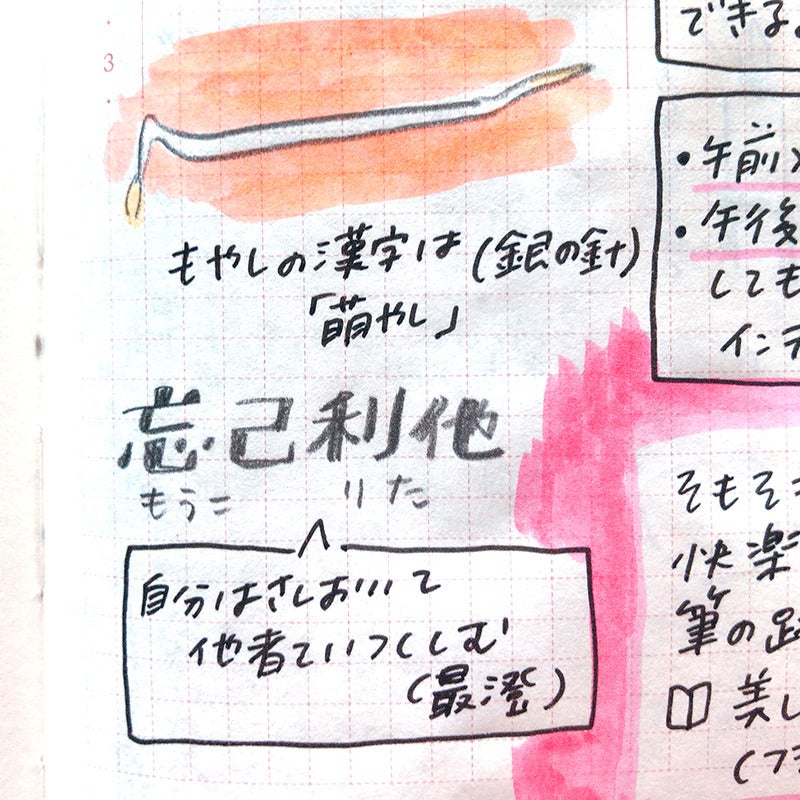 3
もやしの漢字は(銀の針)
「萌やし」
忘己利他
もうこ りた
自分はさしおいて
他者ていつくしむ
(最澄)
できる。
・午前
・午後
しても
インテ
そもそ
快楽
筆の跡
美し
(フラ